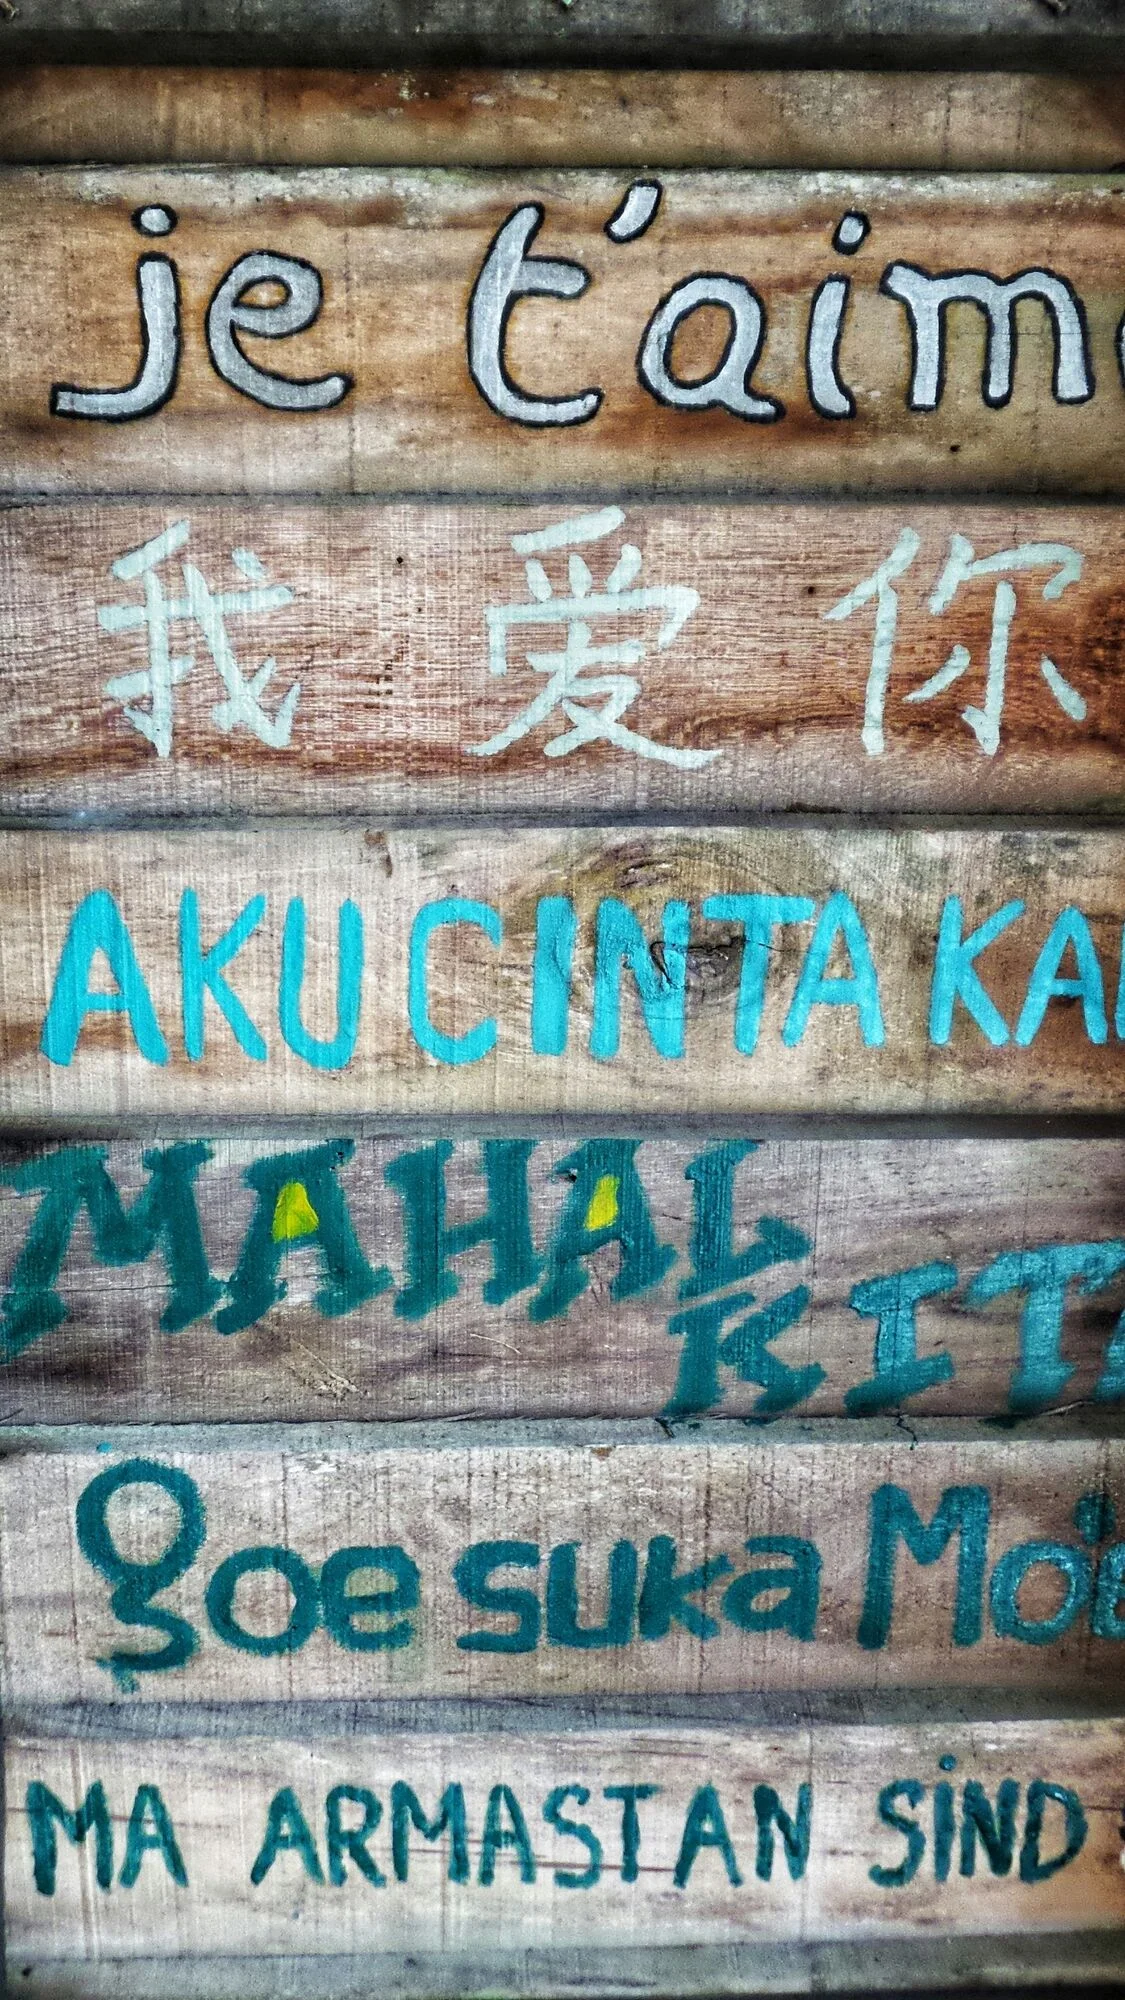 je t'aime
我 爱 你
AKU CINTA KA
MAHAL
KITA
goe suka Mo
MA ARMASTAN SIND